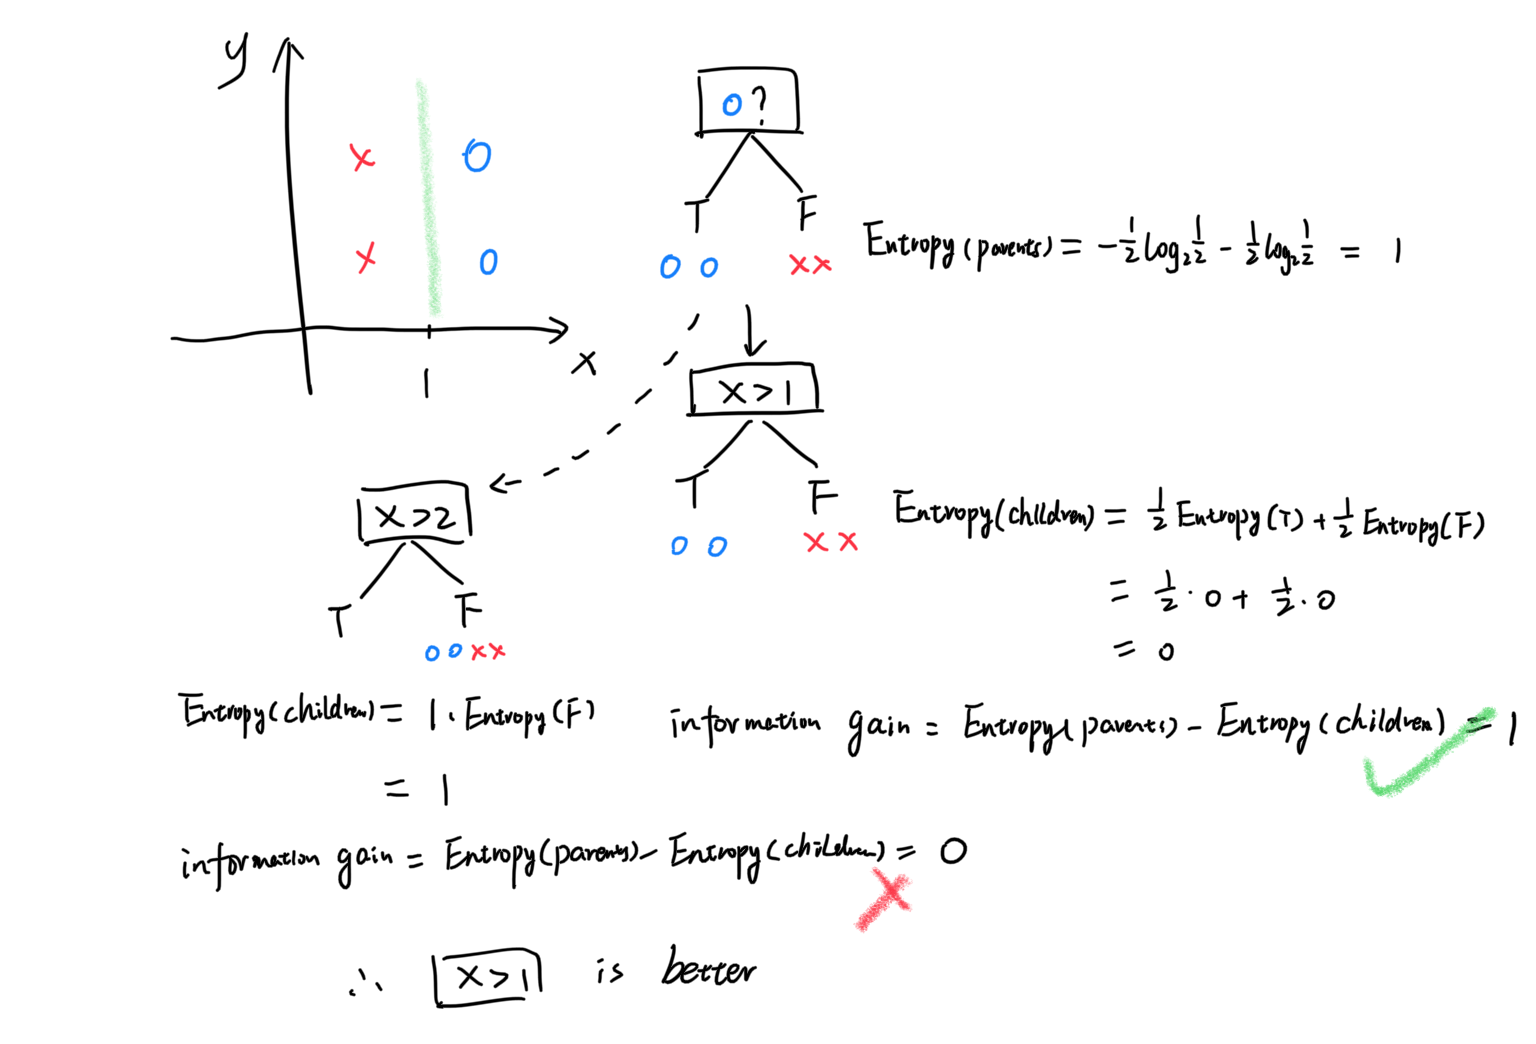 y
x
o
x
o
1
x
o ?
T F
o o xx
Entropy(parents) = -1/2 log₂ 1/2 - 1/2 log₂ 1/2 = 1
x > 1
T F
o o x x
Entropy(children) = 1/2 Entropy(T) + 1/2 Entropy(F)
= 1/2 · 0 + 1/2 · 0
= 0
x > 2
T F
o o x x
Entropy(children) = 1 · Entropy(F)
= 1
information gain = Entropy(parents) - Entropy(children) = 1
information gain = Entropy(parents) - Entropy(children) = 0
∴ x > 1 is better